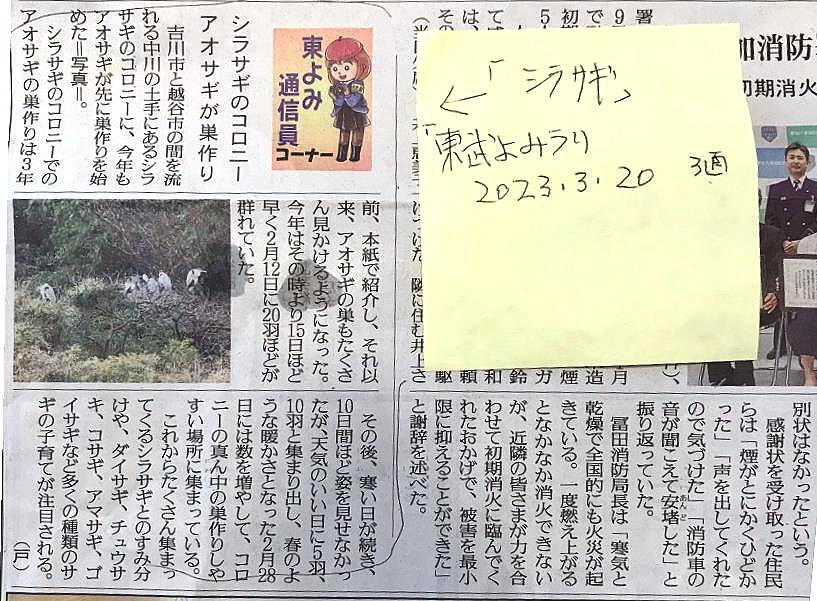 加消防
初期消火
「シラサギ」
←
「東武よみうり
2023.3.20
東よみ
通信員
コーナー
シラサギのコロニー
アオサギが巣作り
吉川市と越谷市の間を流
れる中川の土手にあるシラ
サギのコロニーに、今年も
アオサギが先に巣作りを始
めた＝写真＝。
シラサギのコロニーでの
アオサギの巣作りは３年
前、本紙で紹介し、それ以
来、アオサギの巣もたくさ
ん見かけるようになった。
今年はその時より15日ほど
早く２月12日に20羽ほどが
群れていた。
その後、寒い日が続き、
10日間ほど姿を見せなかっ
たが、天気のいい日に５羽、
10羽と集まり出し、春のよ
うな暖かさとなった２月28
日には数を増やして、コロ
ニーの真ん中の巣作りしや
すい場所に集まっている。
これからたくさん集まっ
てくるシラサギとのすみ分
けや、ダイサギ、チュウサ
ギ、コサギ、アマサギ、ゴ
イサギなど多くの種類のサ
ギの子育てが注目される。
（戸）
隣に住む井上さ
別状はなかったという。
感謝状を受け取った住民
らは「煙がとにかくひどか
った」「声を出してくれた
ので気づけた」「消防車の
音が聞こえて安堵した」と
あんど
振り返っていた。
冨田消防局長は「寒気と
乾燥で全国的にも火災が起
きている。一度燃え上がる
となかなか消火できない
が、近隣の皆さまが力を合
わせて初期消火に臨んでく
れたおかげで、被害を最小
限に抑えることができた」
と謝辞を述べた。